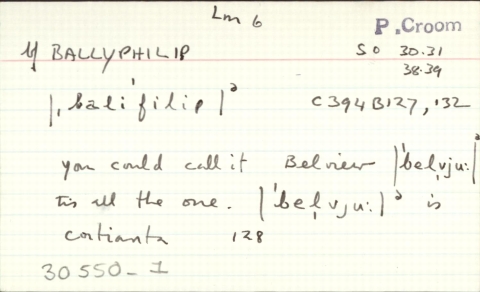 Lm 6
P. Croom
lf BALLYPHILIP
SO 30.31
38.39
|ˌbaliˈfilip|ᵃ
C394B127, 132
you could call it Belview |ˈbelˌvjuː|ᵃ
tis all the one. |ˈbelˌvjuː|ᵃ is
128
30550_1